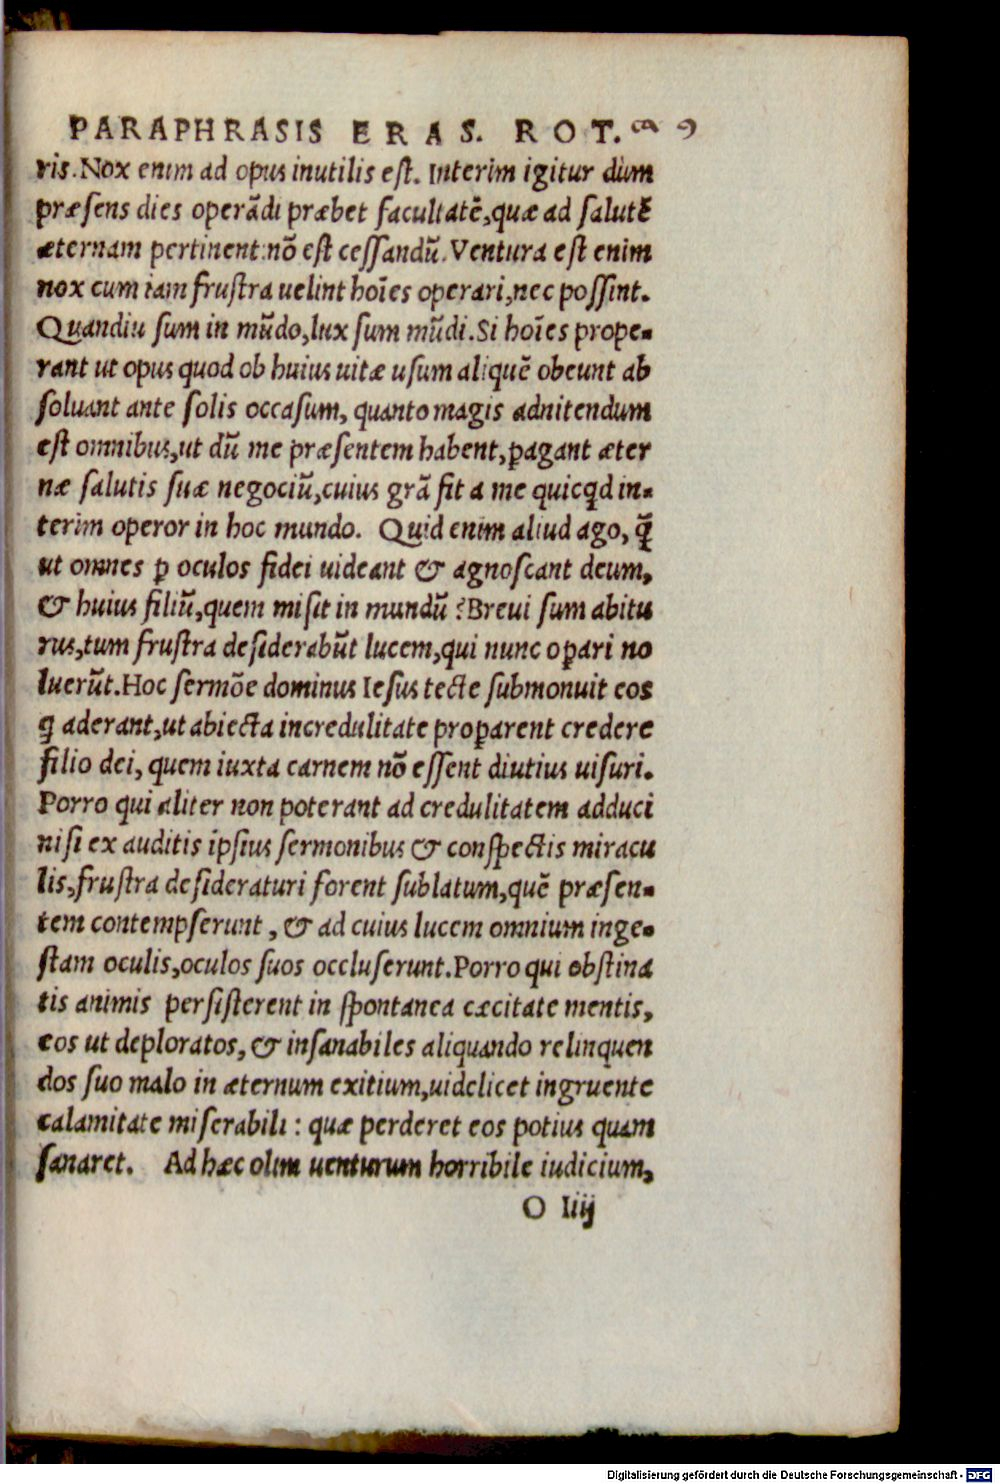 PARAPHRASIS ERAS. ROT.
ris. Nox enim ad opus inutilis est. Interim igitur dum
præsens dies operādi præbet facultatē, quæ ad salutē
æternam pertinent: nō est cessandū. Ventura est enim
nox cum iam frustra uelint hoīes operari, nec possint.
Quandiu sum in mūdo, lux sum mūdi. Si hoīes prope-
rant ut opus quod ob huius uitæ usum aliquē obeunt ab
soluant ante solis occasum, quanto magis adnitendum
est omnibus, ut dū me præsentem habent, ꝑagant æter
næ salutis suæ negociū, cuius grā fit a me quicꝗd in-
terim operor in hoc mundo. Quid enim aliud ago, ꝗ̄
ut omnes ꝑ oculos fidei uideant & agnoscant deum,
& huius filiū, quem misit in mundū? Breui sum abitu
rus, tum frustra desiderabūt lucem, qui nunc oꝑari no
luerūt. Hoc sermōe dominus Iesus tecte submonuit eos
ꝗ aderant, ut abiecta incredulitate proꝑarent credere
filio dei, quem iuxta carnem nō essent diutius uisuri.
Porro qui aliter non poterant ad credulitatem adduci
nisi ex auditis ipsius sermonibus & conspectis miracu
lis, frustra desideraturi forent sublatum, quē præsen-
tem contempserunt, & ad cuius lucem omnium inge-
stam oculis, oculos suos occluserunt. Porro qui obstina
tis animis persisterent in spontanea cæcitate mentis,
eos ut deploratos, & insanabiles aliquando relinquen
dos suo malo in æternum exitium, uidelicet ingruente
calamitate miserabili: quæ perderet eos potius quam
sanaret. Ad hæc olim uenturum horribile iudicium,
O Iiij
Digitalisierung gefördert durch die Deutsche Forschungsgemeinschaft - DFG